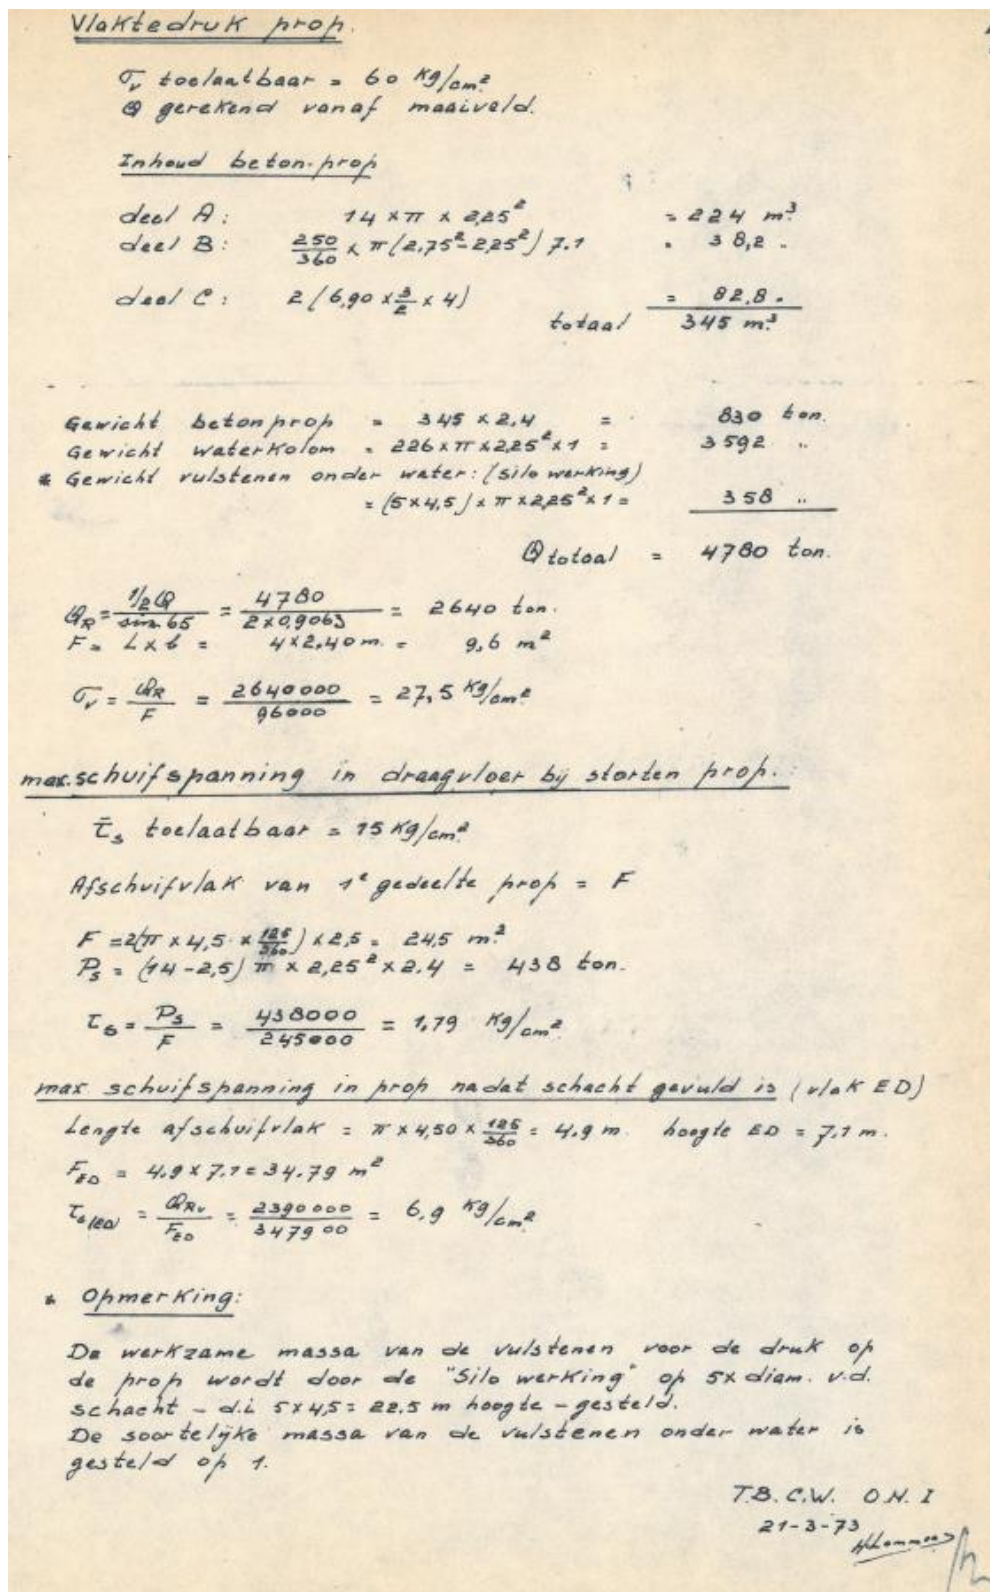 Vlaktedruk prop.
σv toelaatbaar = 60 Kg/cm²
Q gerekend vanaf maaiveld.
Inhoud beton-prop
deel A: 14 × π × 2,25² = 224 m³
deel B: 250/360 × π (2,75² - 2,25²) 7.1 " 38,2 "
deel C: 2 (6,90 × 3/2 × 4) = 82,8 "
totaal 345 m³
Gewicht betonprop = 345 × 2,4 = 830 ton.
Gewicht waterkolom = 226 × π × 2,25² × 1 = 3592 "
* Gewicht vulstenen onder water: (silo werking)
= (5 × 4,5) × π × 2,25² × 1 = 358 "
Q totaal = 4780 ton.
QR = ½Q / sin 65 = 4780 / 2 × 0,9063 = 2640 ton.
F = L × b = 4 × 2,40 m. = 9,6 m²
σv = QR / F = 2640000 / 96000 = 27,5 Kg/cm²
max. schuifspanning in draagvloer bij storten prop.:
τ̄s toelaatbaar = 15 Kg/cm²
Afschuifvlak van 1e gedeelte prop = F
F = 2(π × 4,5 × 125/360) × 2,5 = 24,5 m²
Ps = (14 - 2,5) π × 2,25² × 2.4 = 438 ton.
τs = Ps / F = 438000 / 245000 = 1,79 Kg/cm²
max schuifspanning in prop nadat schacht gevuld is (vlak ED)
Lengte afschuifvlak = π × 4,50 × 125/360 = 4.9 m. hoogte ED = 7.1 m.
FED = 4.9 × 7.1 = 34.79 m²
τs(ED) = QRv / FED = 2390000 / 347900 = 6,9 Kg/cm²
* Opmerking:
De werkzame massa van de vulstenen voor de druk op
de prop wordt door de "Silo werking" op 5x diam. v.d.
schacht - d.i. 5 × 4,5 = 22.5 m hoogte - gesteld.
De soortelijke massa van de vulstenen onder water is
gesteld op 1.
T.B.C.W. O.N.I
21-3-73